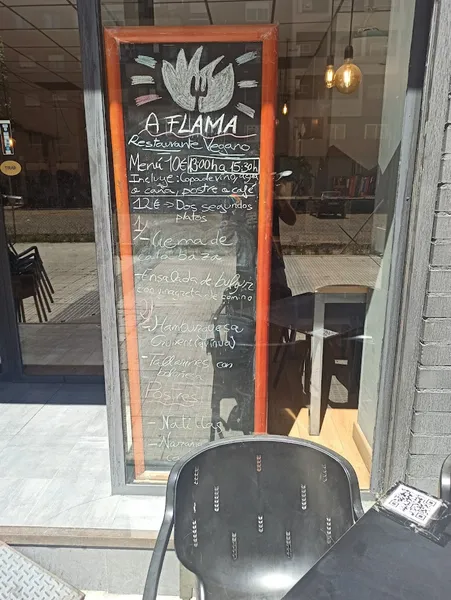 A FLAMA
Restaurante Vegano
Menú 10€ 13:00h a 15:30h
Incluye: Copa de vino, agua
o caña, postre o café
12€ → Dos segundos
platos
1/
- Crema de
calabaza
- Ensalada de bulgur
con vinagreta de comino
- Hamburguesa
- Tallarines con
Postres
- Natillas
- Naranja